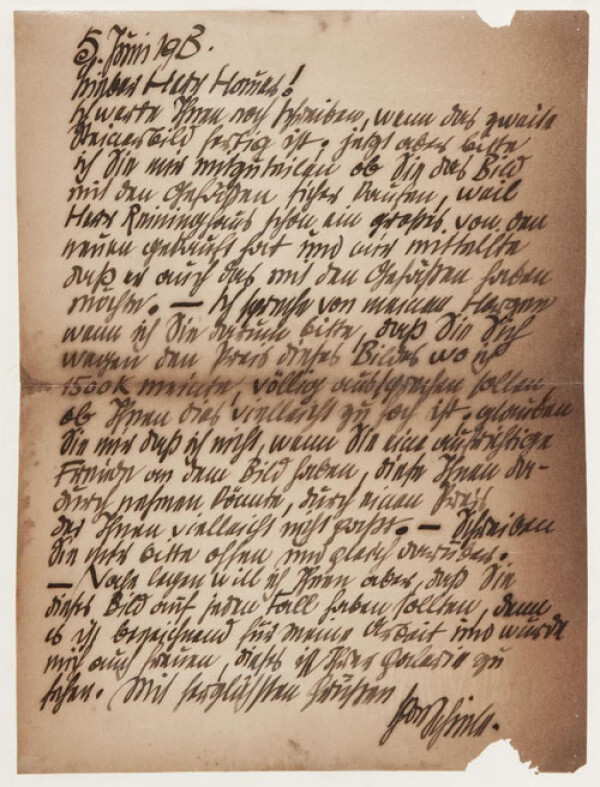 5. Juni 1913.
Lieber Herr Hauer!
Ich werde Ihnen noch schreiben, wenn das zweite
Steinerbild fertig ist. jetzt aber bitte
ich Sie mir mitzuteilen ob Sie das Bild
mit den Gefäßen sicher kaufen, weil
Herr Reininghaus schon ein großes von den
neuen gekauft hat und mir mitteilte
daß er auch das mit den Gefäßen haben
möchte. — Ich spreche von meinem Herzen
wenn ich Sie darum bitte, daß Sie Sich
wegen den Preis dieses Bildes wo ich
1500 K meinte, völlig aussprechen sollen,
ob Ihnen das vielleicht zu hoch ist. glauben
Sie mir daß ich nicht, wenn Sie eine aufrichtige
Freude an dem Bild haben, diese Ihnen da-
durch nehmen könnte, durch einen Preis
der Ihnen vielleicht nicht paßt. — Schreiben
Sie mir bitte offen und gleich darüber.
— Nahe legen will ich Ihnen aber, daß Sie
dieses Bild auf jeden Fall haben sollten, denn
es ist bezeichnend für meine Arbeit und würde
mich auch freuen, dieses in Ihrer Galerie zu
sehen. Mit herzlichsten Grüßen